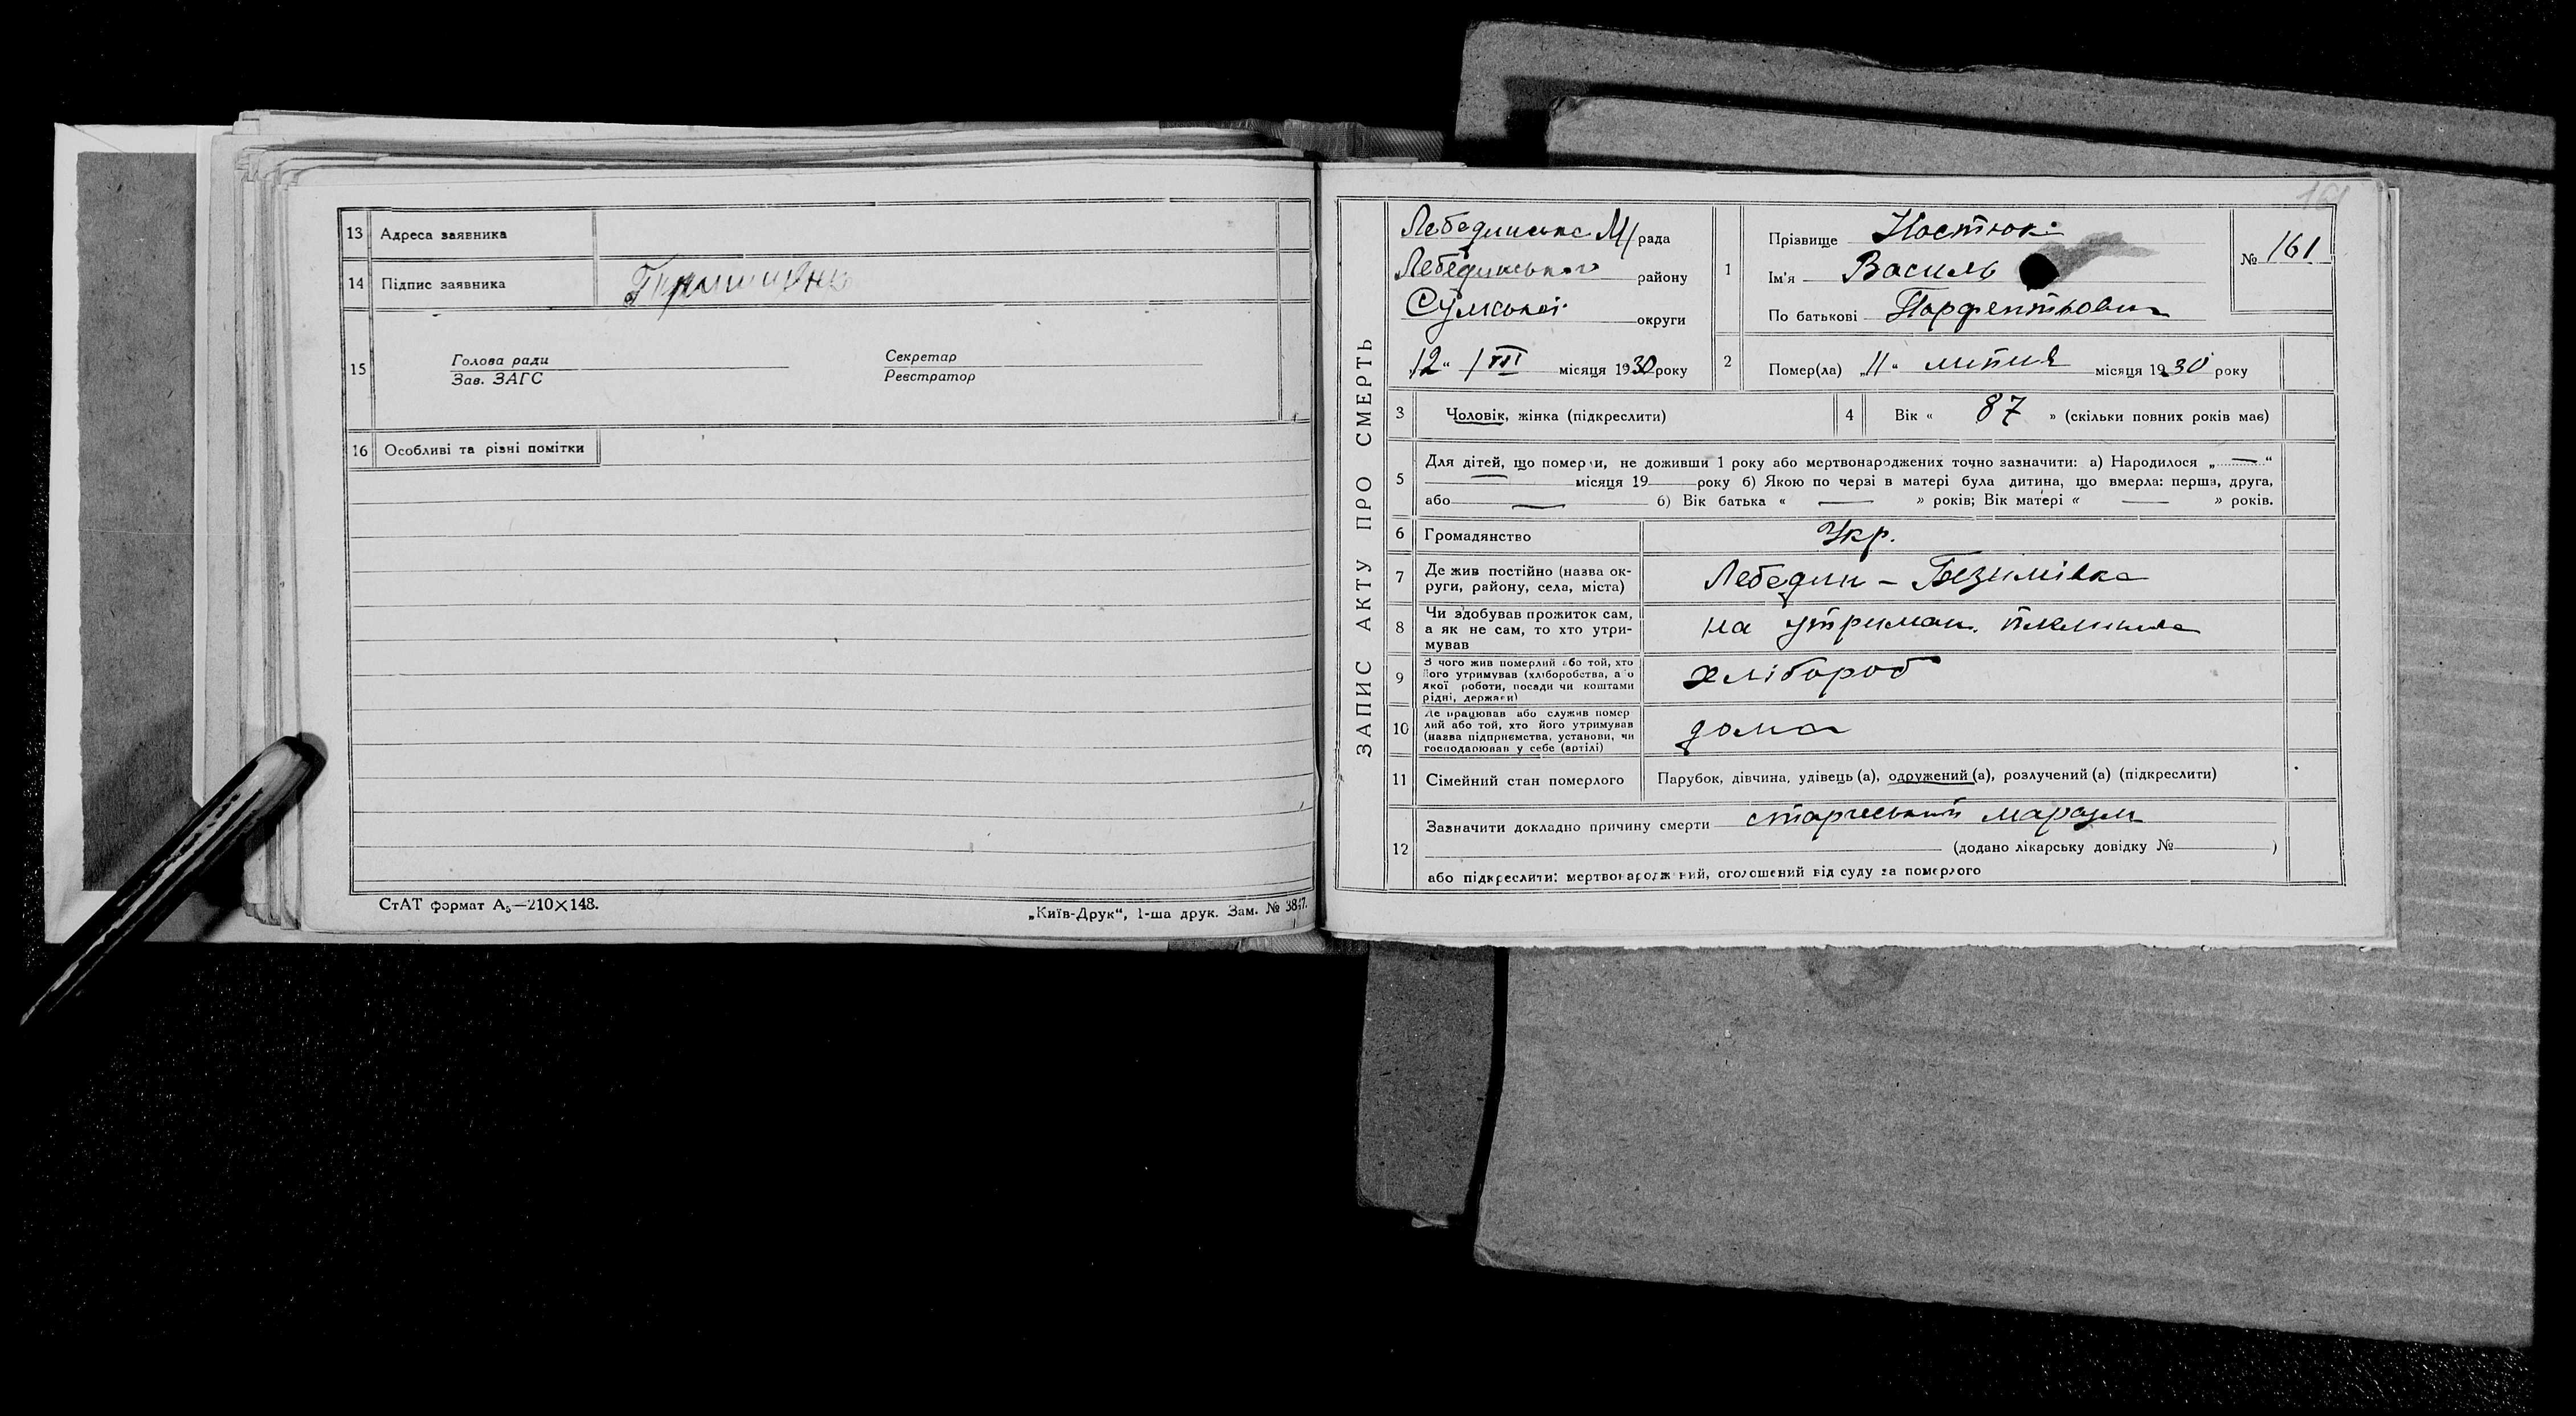 13 Адреса заявника
14 Підпис заявника
15 Голова ради
Зав. ЗАГС
Секретар
Реєстратор
16 Особливі та різні помітки
СтАТ формат А₅—210×148.
„Київ-Друк“, 1-ша друк. Зам. № 3847.
161
ЗАПИС АКТУ ПРО СМЕРТЬ
Лебединська М/рада
Лебединського району
Сумської округи
12 " / VII місяця 1930 року
1 Прізвище Костюк
Ім'я Василь
По батькові Парфентьович
№ 161
2 Помер(ла) „11 " липня місяця 1930 року
3 Чоловік, жінка (підкреслити)
4 Вік « 87 » (скільки повних років має)
5 Для дітей, що померли, не доживши 1 року або мертвонароджених точно зазначити: а) Народилося „ — “
місяця 19 року б) Якою по черзі в матері була дитина, що вмерла: перша, друга,
або — б) Вік батька « — » років; Вік матері « — » років.
6 Громадянство Укр.
7 Де жив постійно (назва ок-
руги, району, села, міста) Лебедин – Безимівка
8 Чи здобував прожиток сам,
а як не сам, то хто утри-
мував на утриман.
9 З чого жив померлий або той, хто
його утримував (хліборобства, або
якої роботи, посади чи коштами
рідні, держави) хлібороб
10 Де працював або служив помер
лий або той, хто його утримував
(назва підприємства, установи, чи
господарював у себе (артілі) дома
11 Сімейний стан померлого Парубок, дівчина, удівець (а), одружений (а), розлучений (а) (підкреслити)
12 Зазначити докладно причину смерти старческий маразм
(додано лікарську довідку № )
або підкреслити: мертвонароджений, оголошений від суду за померлого